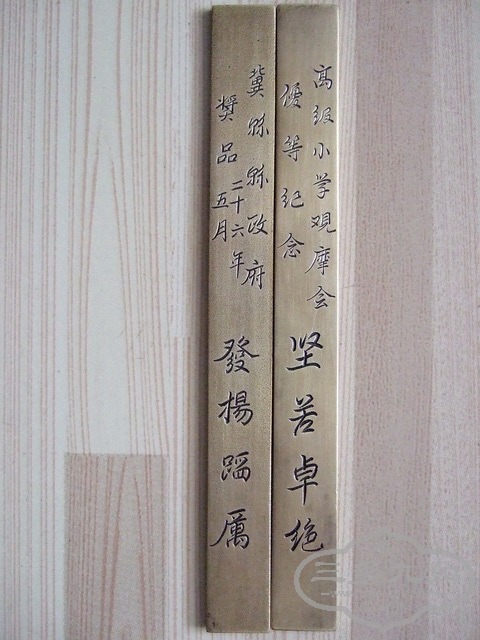 高级小学观摩会
優等纪念
坚苦卓绝
冀縣縣政府
二十六年
五月
奬品
發揚蹈厲